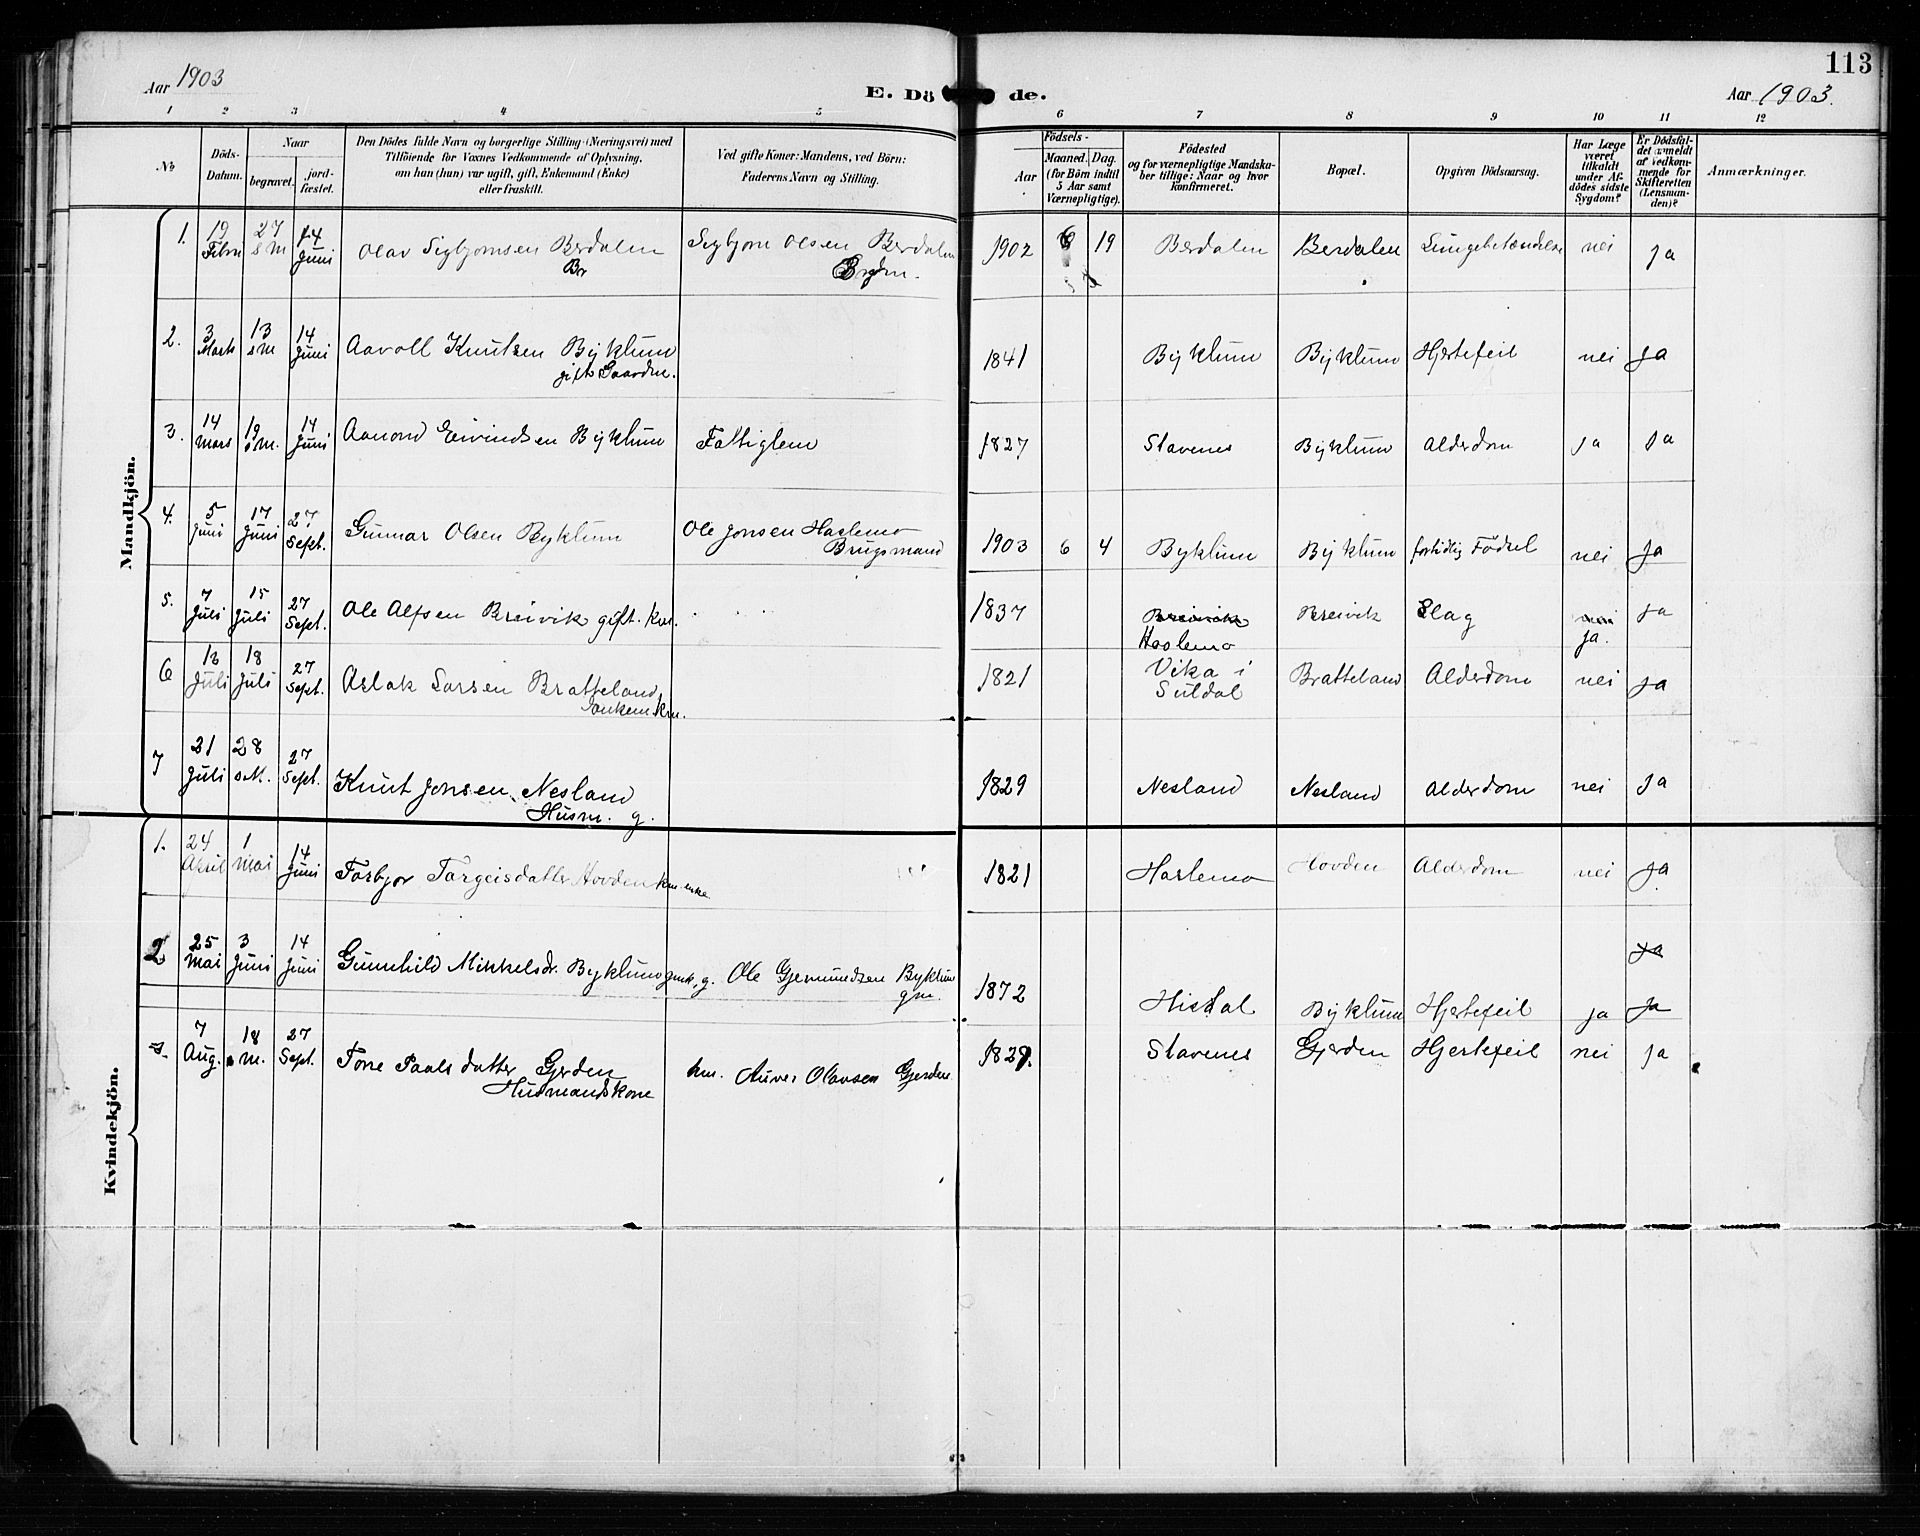 113
Aar 1903
E. Döde.
Aar 1903.
1 2 3 4 5 6 7 8 9 10 11 12
No
Döds-Datum.
Naar
begravet.
jordfæstet.
Den Dödes fulde Navn og borgerlige Stilling (Næringsvei) med
Tilföiende for Voxnes Vedkommende af Oplysning,
om han (hun) var ugift, gift, Enkemand (Enke)
eller fraskilt.
Ved gifte Koner: Mandens, ved Börn:
Faderens Navn og Stilling.
Födsels-
Aar
Maaned. Dag.
(for Börn indtil
5 Aar samt
Værnepligtige).
Födested
og for værnepligtige Mandska-
ber tillige: Naar og hvor
konfirmeret.
Bopæl.
Opgiven Dödsaarsag.
Har Læge
været
tilkaldt
under Af-
dödes sidste
Sygdom?
Er Dödsfal-
det anmeldt
af Vedkom-
mende for
Skifteretten
(Lensman-
den)?
Anmærkninger.
Mandkjön.
1. 19 Febru 27 s M 14 Juni Olav Sigbjornsen Berdalen Sigbjorn Olsen Berdalen 1902 6 19 Berdalen Berdalen Lungebetændelse nei ja
Br
2. 3 Marts 13 s M 14 Juni Aavoll Knutsen Byklum 1841 Byklum Byklum Hjertefeil nei ja
gift Gaardm.
3. 14 Mars 19 s M. 14 Juni Aamond Eivindsen Byklum Fattiglem 1827 Stavenes Byklum Alderdom ja ja
4. 5 Juni 17 Juni 27 Sept. Gunnar Olsen Byklum Ole Jonsen Haslemo 1903 6 4 Byklum Byklum fortidlig Födsel nei ja
Brugsmand
5. 7 Juli 15 Juli 27 Sept. Ole Alfsen Breivik gift. 1837 Breivik Breivik Slag nei ja
Haslemo ja.
6 13 Juli 18 Juli 27 Sept. Aslak Larsen Bratteland 1821 Vika i Bratteland Alderdom nei ja
Suldal
7 21 Juli 28 s M. 27 Sept. Knut Jonsen Nesland 1829 Nesland Nesland Alderdom nei ja
Husm. g.
Kvindekjön.
1. 24 April 1 Mai 14 Juni Torbjor Targeisdatter Hovden enke 1821 Haslemo Hovden Alderdom nei ja
2 25 Mai 3 Juni 14 Juni Gunnhild Mikkelsdr. Byklum gmk. g. Ole Gjermundsen Byklum ja
gm.
1872 Histal Byklum Hjertefeil ja ja
3. 7 Aug. 18 s M. 27 Sept. Tone Paalsdatter Gjerden hm. Auver Olavsen Gjerden 1829. Stavenes Gjerden Hjertefeil nei ja
Husmandskone